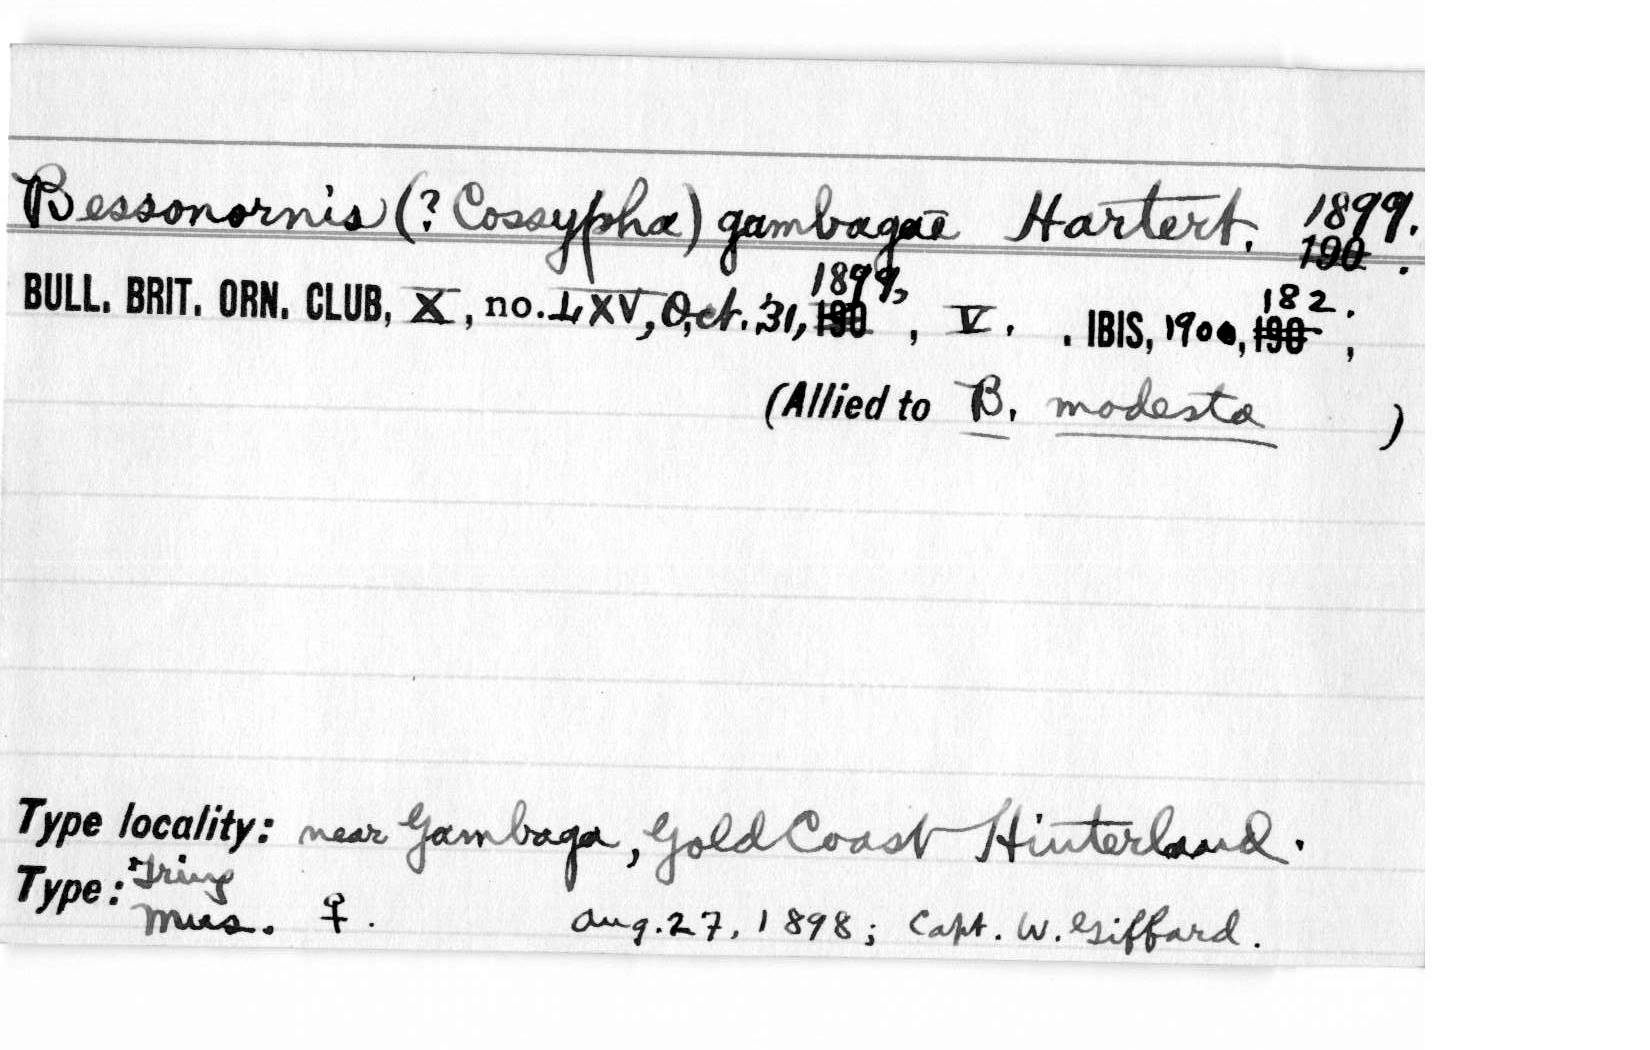 Bessonornis (? Cossypha) gambagae Hartert. 1899.
190 .
BULL. BRIT. ORN. CLUB, X, no. LXV, Oct. 31, 190 1899, , V. . IBIS, 1900, 190 182. ;
(Allied to B. modesta )
Type locality: near Gambaga, Gold Coast Hinterland.
Type: Tring
Mus. ♀. Aug. 27, 1898; Capt. W. Giffard.